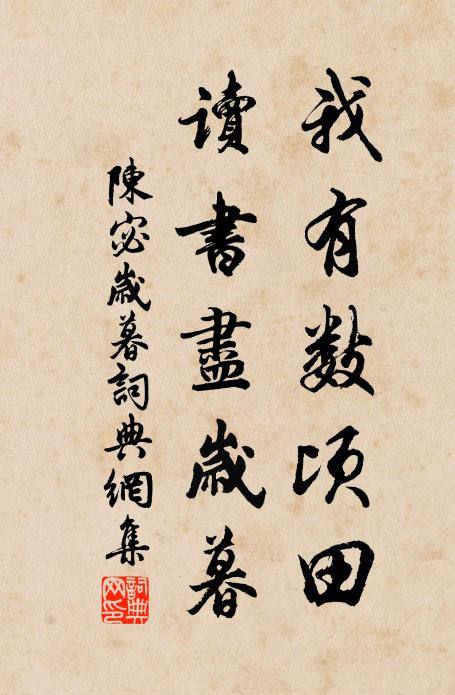 我有数頃田
讀書盡歲暮
陳宓歲暮詞典網集
詞典網印